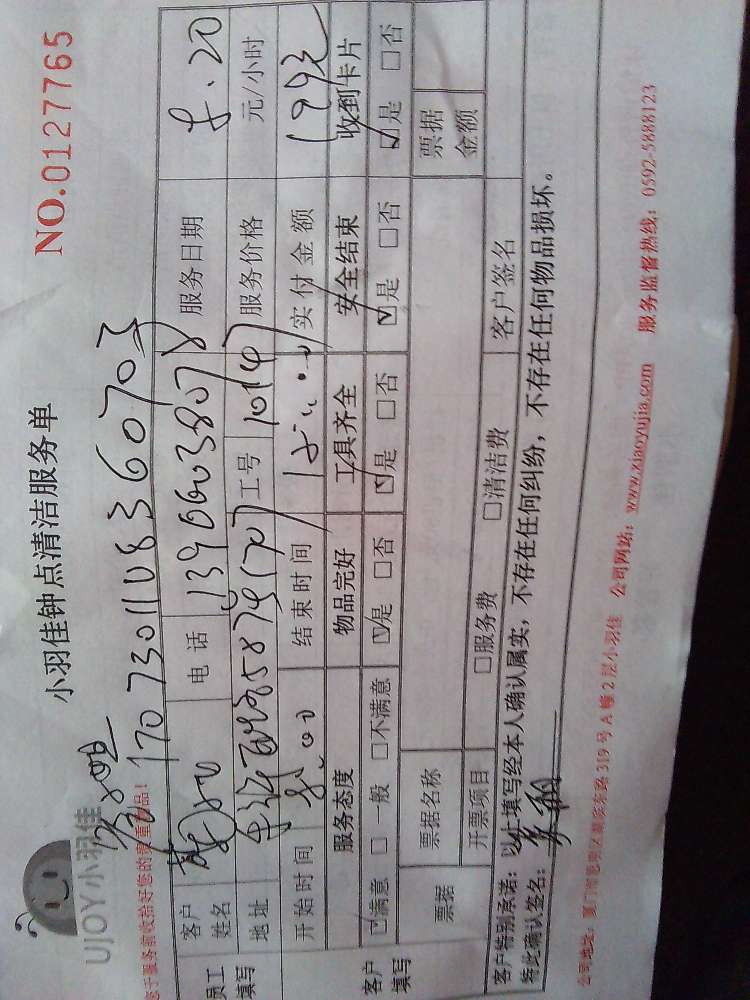 UJOY小羽佳
小羽佳钟点清洁服务单
NO.0127765
1707301108360703
您于服务前收拾好您的贵重物品!
员工填写
客户姓名
电话 13906038078
服务日期 8.20
地址
工号 10147
服务价格 元/小时
开始时间 8:00
结束时间
实付金额 199元
客户填写
服务态度 物品完好 工具齐全 安全结束 收到卡片
☑满意 □一般 □不满意 ☑是 □否 ☑是 □否 ☑是 □否 ☑是 □否
票据
票据名称
票据金额
开票项目 □服务费 □清洁费 客户签名
客户特别承诺:以上填写经本人确认属实,不存在任何纠纷,不存在任何物品损坏。
特此确认签名:
公司地址:厦门市思明区湖滨东路319号A幢2层小羽佳 公司网站:www.xiaoyujia.com 服务监督热线:0592-5888123